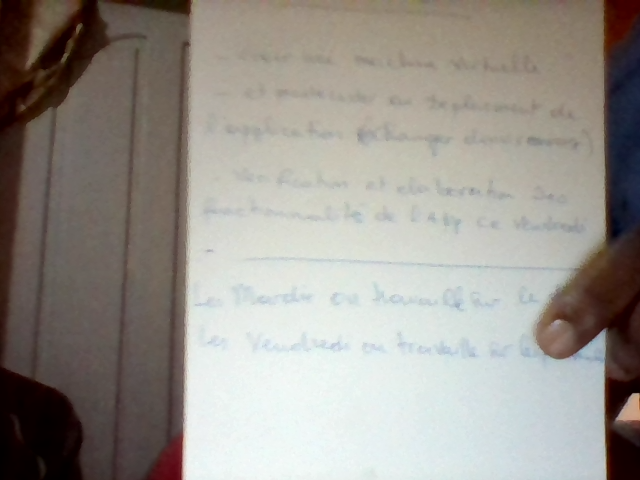 - créer une machine virtuelle
- et procéder au déploiement de
l'application (changer d'environnement)
- Vérification et élaboration des
fonctionnalité de l'App ce vendredi
-
Les Mardis on travaille sur le
Les Vendredi on travaille sur